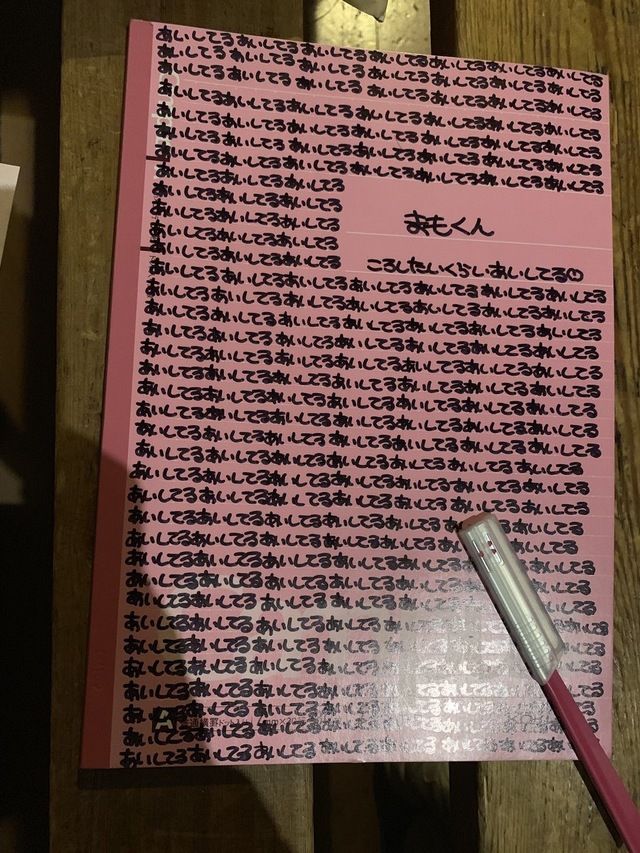 あいしてるあいしてるあいしてるあいしてるあいしてるあいしてるあいしてる
あいしてるあいしてるあいしてるあいしてるあいしてるあいしてるあいしてる
あいしてるあいしてるあいしてるあいしてるあいしてるあいしてる
あいしてるあいしてるあいしてるあいしてるあいしてるあいしてるあいしてる
あいしてるあいしてるあいしてるあいしてるあいしてるあいしてるあいしてる
あいしてるあいしてるあいしてるあいしてるあいしてるあいしてるあいしてる
あいしてるあいしてるあいしてるあいしてるあいしてるあいしてるあいしてる
あいしてるあいしてるあいしてる
あいしてるあいしてるあいしてる
あいしてるあいしてるあいしてる
まもくん
あいしてるあいしてるあいしてる
あいしてるあいしてるあいしてる
ころしたいくらいあいしてる
あいしてるあいしてるあいしてるあいしてるあいしてるあいしてるあいしてる
あいしてるあいしてるあいしてるあいしてるあいしてるあいしてるあいしてる
あいしてるあいしてるあいしてるあいしてるあいしてるあいしてるあいしてる
あいしてるあいしてるあいしてるあいしてるあいしてるあいしてるあいしてる
あいしてるあいしてるあいしてるあいしてるあいしてるあいしてるあいしてる
あいしてるあいしてるあいしてるあいしてるあいしてるあいしてるあいしてる
あいしてるあいしてるあいしてるあいしてるあいしてるあいしてるあいしてる
あいしてるあいしてるあいしてるあいしてるあいしてるあいしてるあいしてる
あいしてるあいしてるあいしてるあいしてるあいしてるあいしてるあいしてる
あいしてるあいしてるあいしてるあいしてるあいしてるあいしてるあいしてる
あいしてるあいしてるあいしてるあいしてるあいしてるあいしてるあいしてる
あいしてるあいしてるあいしてるあいしてるあいしてるあいしてるあいしてる
あいしてるあいしてるあいしてるあいしてるあいしてるあいしてる
あいしてるあいしてるあいしてるあいしてるあいしてるあいしてる
あいしてるあいしてるあいしてるあいしてるあいしてる
あいしてるあいしてるあいしてるあいしてるあいしてる
あいしてるあいしてるあいしてるあいしてるあいしてる
あいしてるあいしてるあいしてるあいしてるあいしてる
あいしてるあいしてるあいしてるあいしてるあいしてる
あいしてるあいしてるあいしてるあいしてるあいしてる
あいしてるあいしてるあいしてるあいしてる
あいしてるあいしてるあいしてるあいしてる
あいしてるあいしてるあいしてるあいしてる